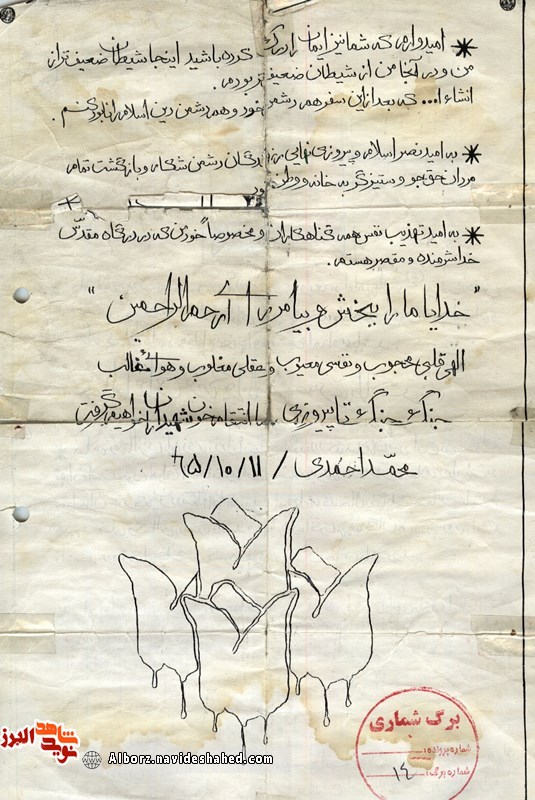 ✳ امیدوارم که شما نیز ایمان را درک کرده باشید اینجا شیطان ضعیف تر از
من و در آنجا من از شیطان ضعیف تر بودم.
انشاءا... که بعد از این سفر هم دشمن خود و هم دشمن دین اسلام را نابود کنم.
✳ به امید نصر اسلام و پیروزی نهایی رزمندگان دشمن شکار و بازگشت تمام
مردان حق جو و ستیزگر به خانه و وطن خود
✳ به امید تهذیب نفس همه گناهکاران و مخصوصاً خود من که در درگاه مقدّس
خدا شرمنده و مقصر هستم.
"خدایا ما را ببخش و بیامرز ای ارحم الراحمین"
الهی قلبی محجوب و نفسی معیوب و عقلی مغلوب و هوائی غالب
جنگ جنگ تا پیروزی ما انتقام خون شهیدان را خواهیم گرفت
محمّد احمدی / ۶۵/۱۰/۱۱
برگ شماری
شماره پرونده:
شماره برگ: ۱۴
نوید شاهد البرز
Alborz.navideshahed.com